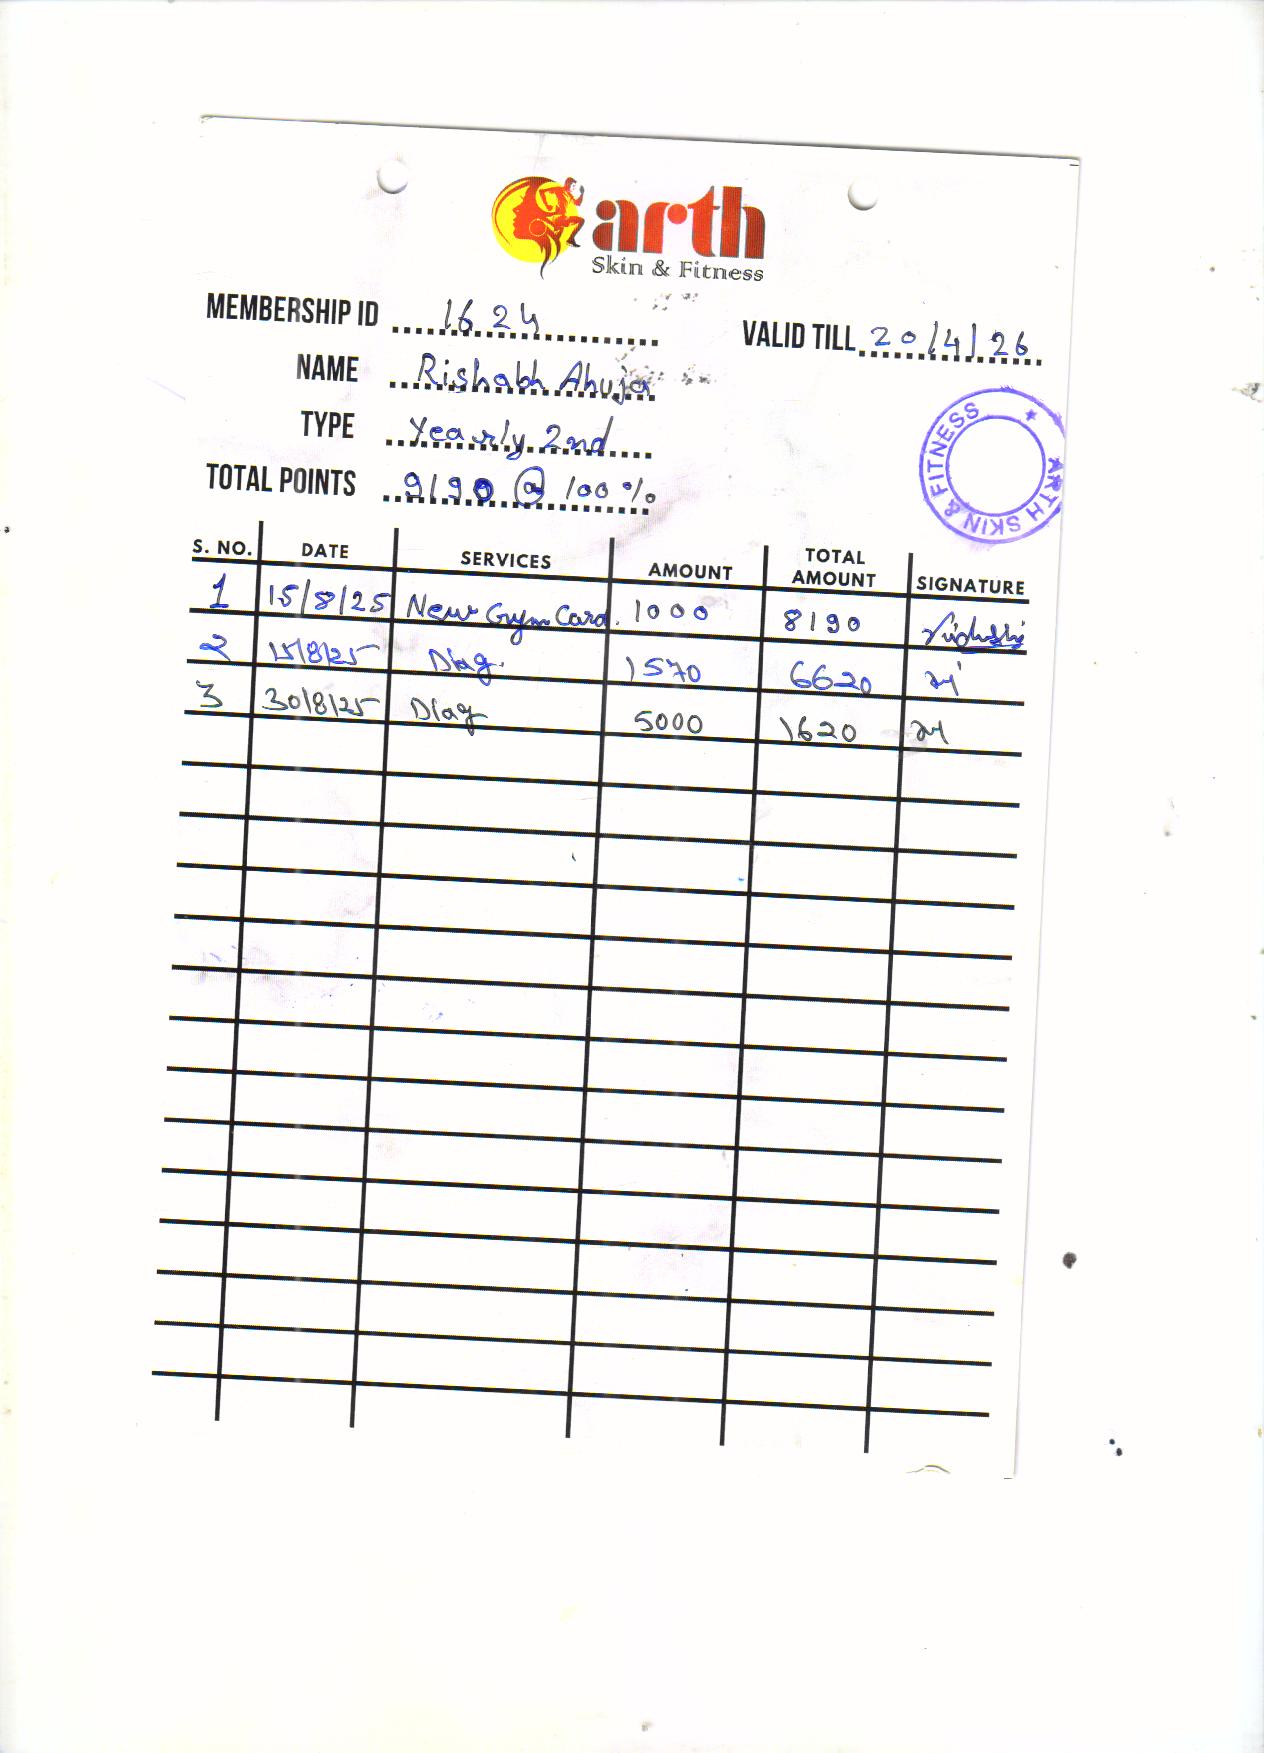 arth
Skin & Fitness
MEMBERSHIP ID 1624
VALID TILL 20/4/26
NAME Rishabh Ahuja
TYPE Yearly 2nd
TOTAL POINTS 9190 @ 100 %
ARTH SKIN & FITNESS ★
S. NO. DATE SERVICES AMOUNT TOTAL AMOUNT SIGNATURE
1 15/8/25 New Gym Card. 1000 8190
2 15/8/25 Diag. 1570 6620
3 30/8/25 Diag 5000 1620